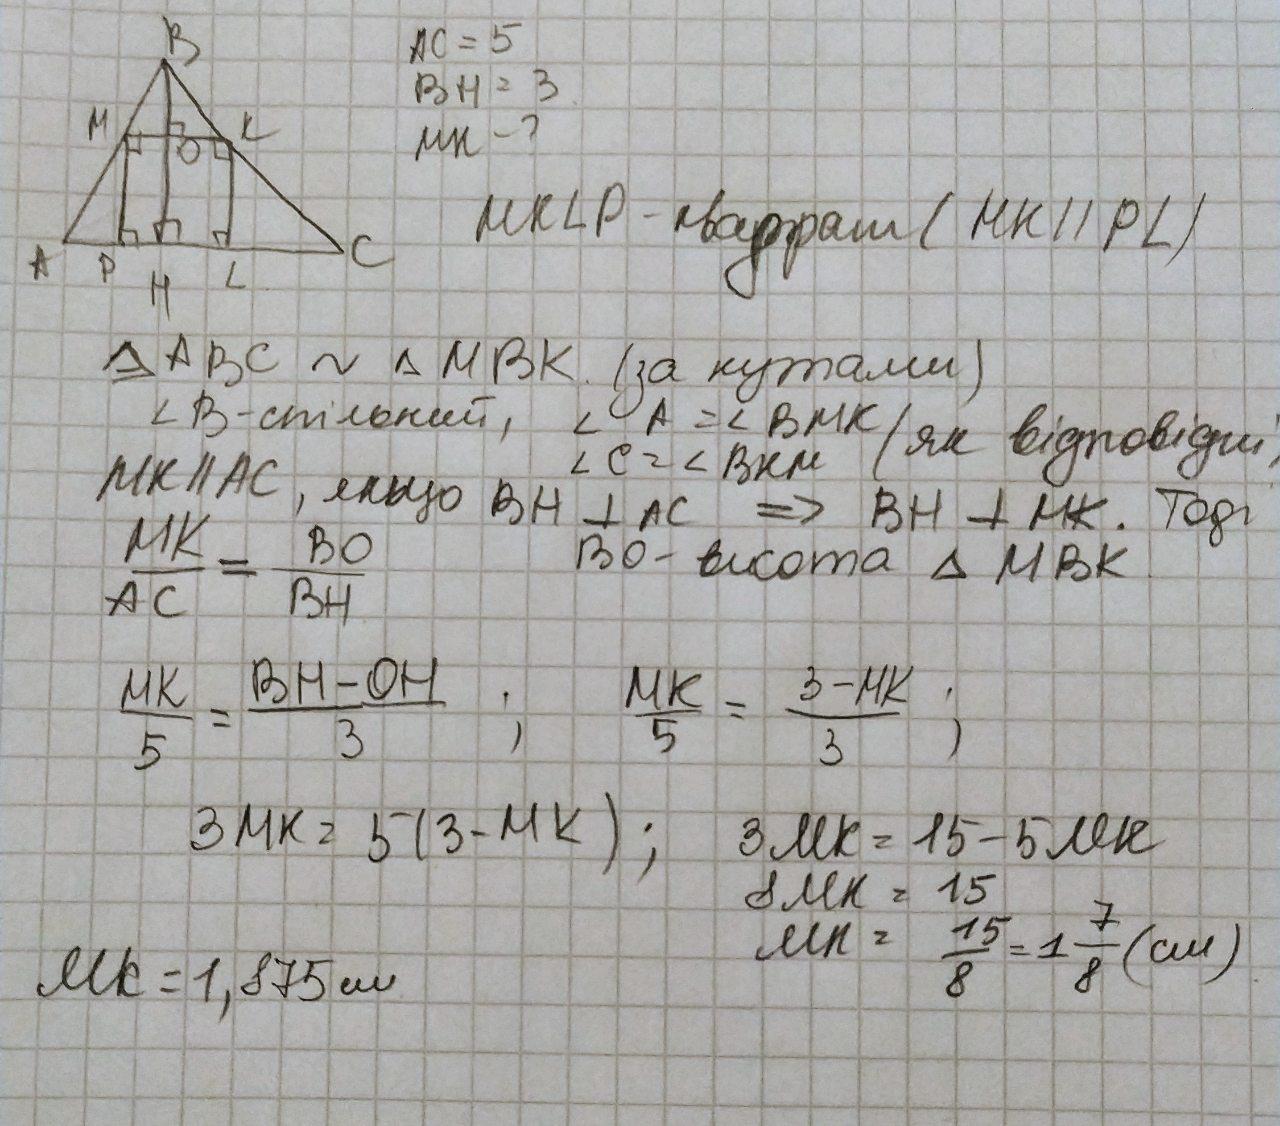 B
AC = 5
BH = 3
M
K
O
MK - ?
MKLP - квадрат (MK || PL)
A
P
H
L
C
△ABC ~ △MBK. (за кутами)
∠B - спільний, ∠A = ∠BMK (як відповідні)
∠C = ∠BKM
MK || AC, якщо BH ⊥ AC => BH ⊥ MK. Тоді
BO - висота △ MBK.
MK/AC = BO/BH
MK/5 = (BH-OH)/3 ; MK/5 = (3-MK)/3 ;
3MK = 5(3-MK); 3MK = 15-5MK
8MK = 15
MK = 15/8 = 1 7/8 (см)
MK = 1,875 см